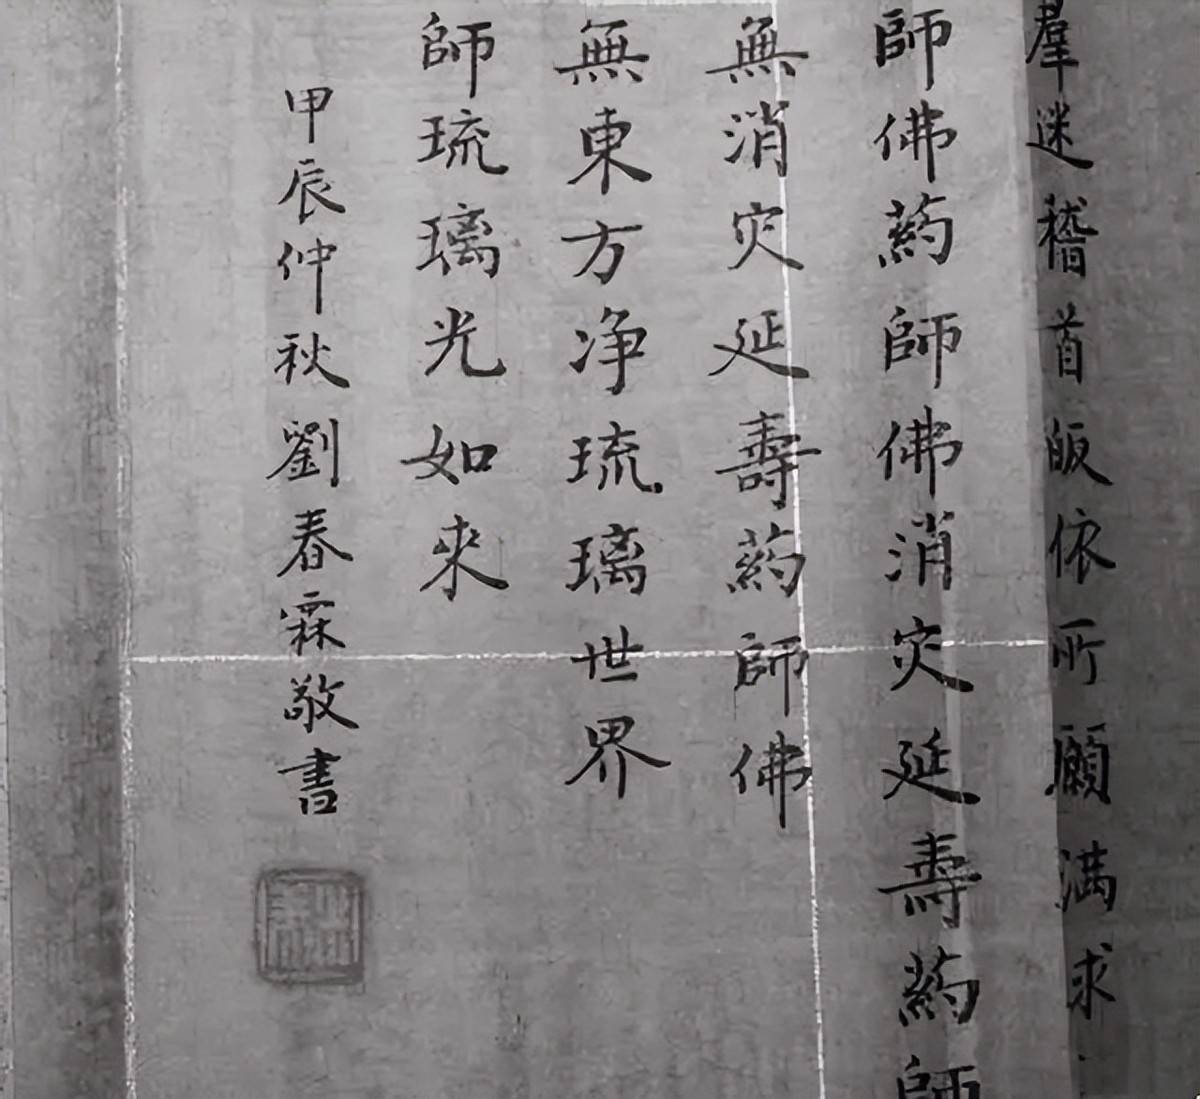 羣迷稽首皈依所願滿求
師佛藥師佛消灾延壽藥師
無消灾延壽藥師佛
無東方净琉璃世界
師琉璃光如来
甲辰仲秋劉春霖敬書